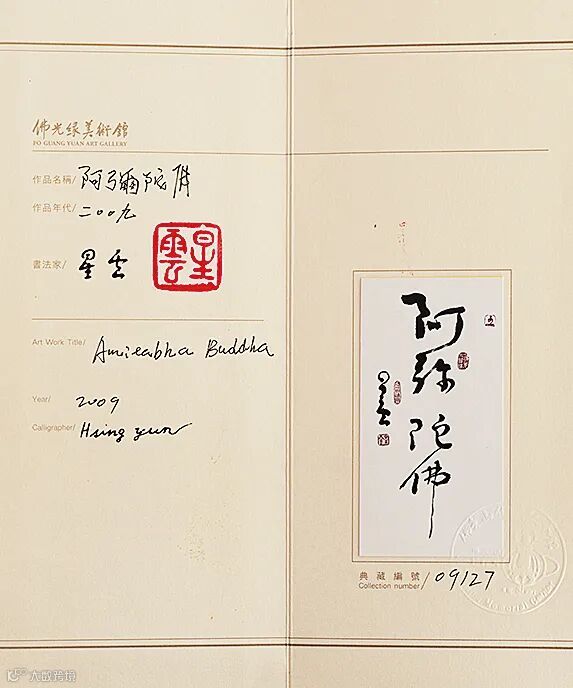 佛光緣美術館
FO GUANG YUAN ART GALLERY
作品名稱/ 阿彌陀佛
作品年代/ 二〇〇九
書法家/ 星雲
星雲
Art Work Title/ Amitabha Buddha
Year/ 2009
Calligrapher/ Hsing yun
阿弥陀佛
星雲
典藏編號/ 09127
Collection number/
大数跨境